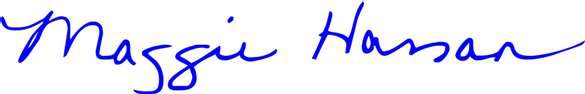 Maggie Hassan